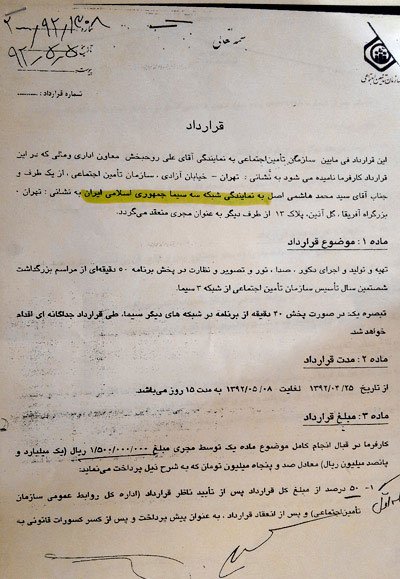 بسمه تعالی
سازمان تأمین اجتماعی
۹۲/۵/۵
شماره قرارداد : ..........
قرارداد
این قرارداد فی مابین سازمان تأمین‌اجتماعی به نمایندگی آقای علی روحبخش معاون اداری ومالی که در این
قرارداد کارفرما نامیده می شود به نشانی : تهران – خیابان آزادی ، سازمان تأمین اجتماعی ، از یک طرف و
جناب آقای سید محمد هاشمی اصل به نمایندگی شبکه سه سیما جمهوری اسلامی ایران به نشانی : تهران -
بزرگراه آفریقا ، گل آئین، پلاک ۱۳ از طرف دیگر به عنوان مجری منعقد می‌گردد.
ماده ۱: موضوع قرارداد
تهیه و تولید و اجرای دکور ، صدا ، نور و تصویر و نظارت در پخش برنامه ۵۰ دقیقه‌ای از مراسم بزرگداشت
شصتمین سال تأسیس سازمان تأمین اجتماعی از شبکه ۳ سیما.
تبصره یک: در صورت پخش ۲۰ دقیقه از برنامه در شبکه های دیگر سیما، طی قرارداد جداگانه ای اقدام
خواهد شد.
ماده ۲: مدت قرارداد
از تاریخ ۱۳۹۲/۰۴/۲۵ لغایت ۱۳۹۲/۰۵/۰۸ به مدت ۱۵ روز می‌باشد.
ماده ۳: مبلغ قرارداد
کارفرما در قبال انجام کامل موضوع ماده یک توسط مجری مبلغ ۱/۵۰۰/۰۰۰/۰۰۰ ریال (یک میلیارد و
پانصد میلیون ریال) معادل صد و پنجاه میلیون تومان که به شرح ذیل پرداخت می‌نماید:
۱- ۵۰ درصد از مبلغ کل قرارداد پس از تأیید ناظر قرارداد (اداره کل روابط عمومی سازمان
تأمین‌اجتماعی) و پس از انعقاد قرارداد ، به عنوان پیش پرداخت و پس از کسر کسورات قانونی به